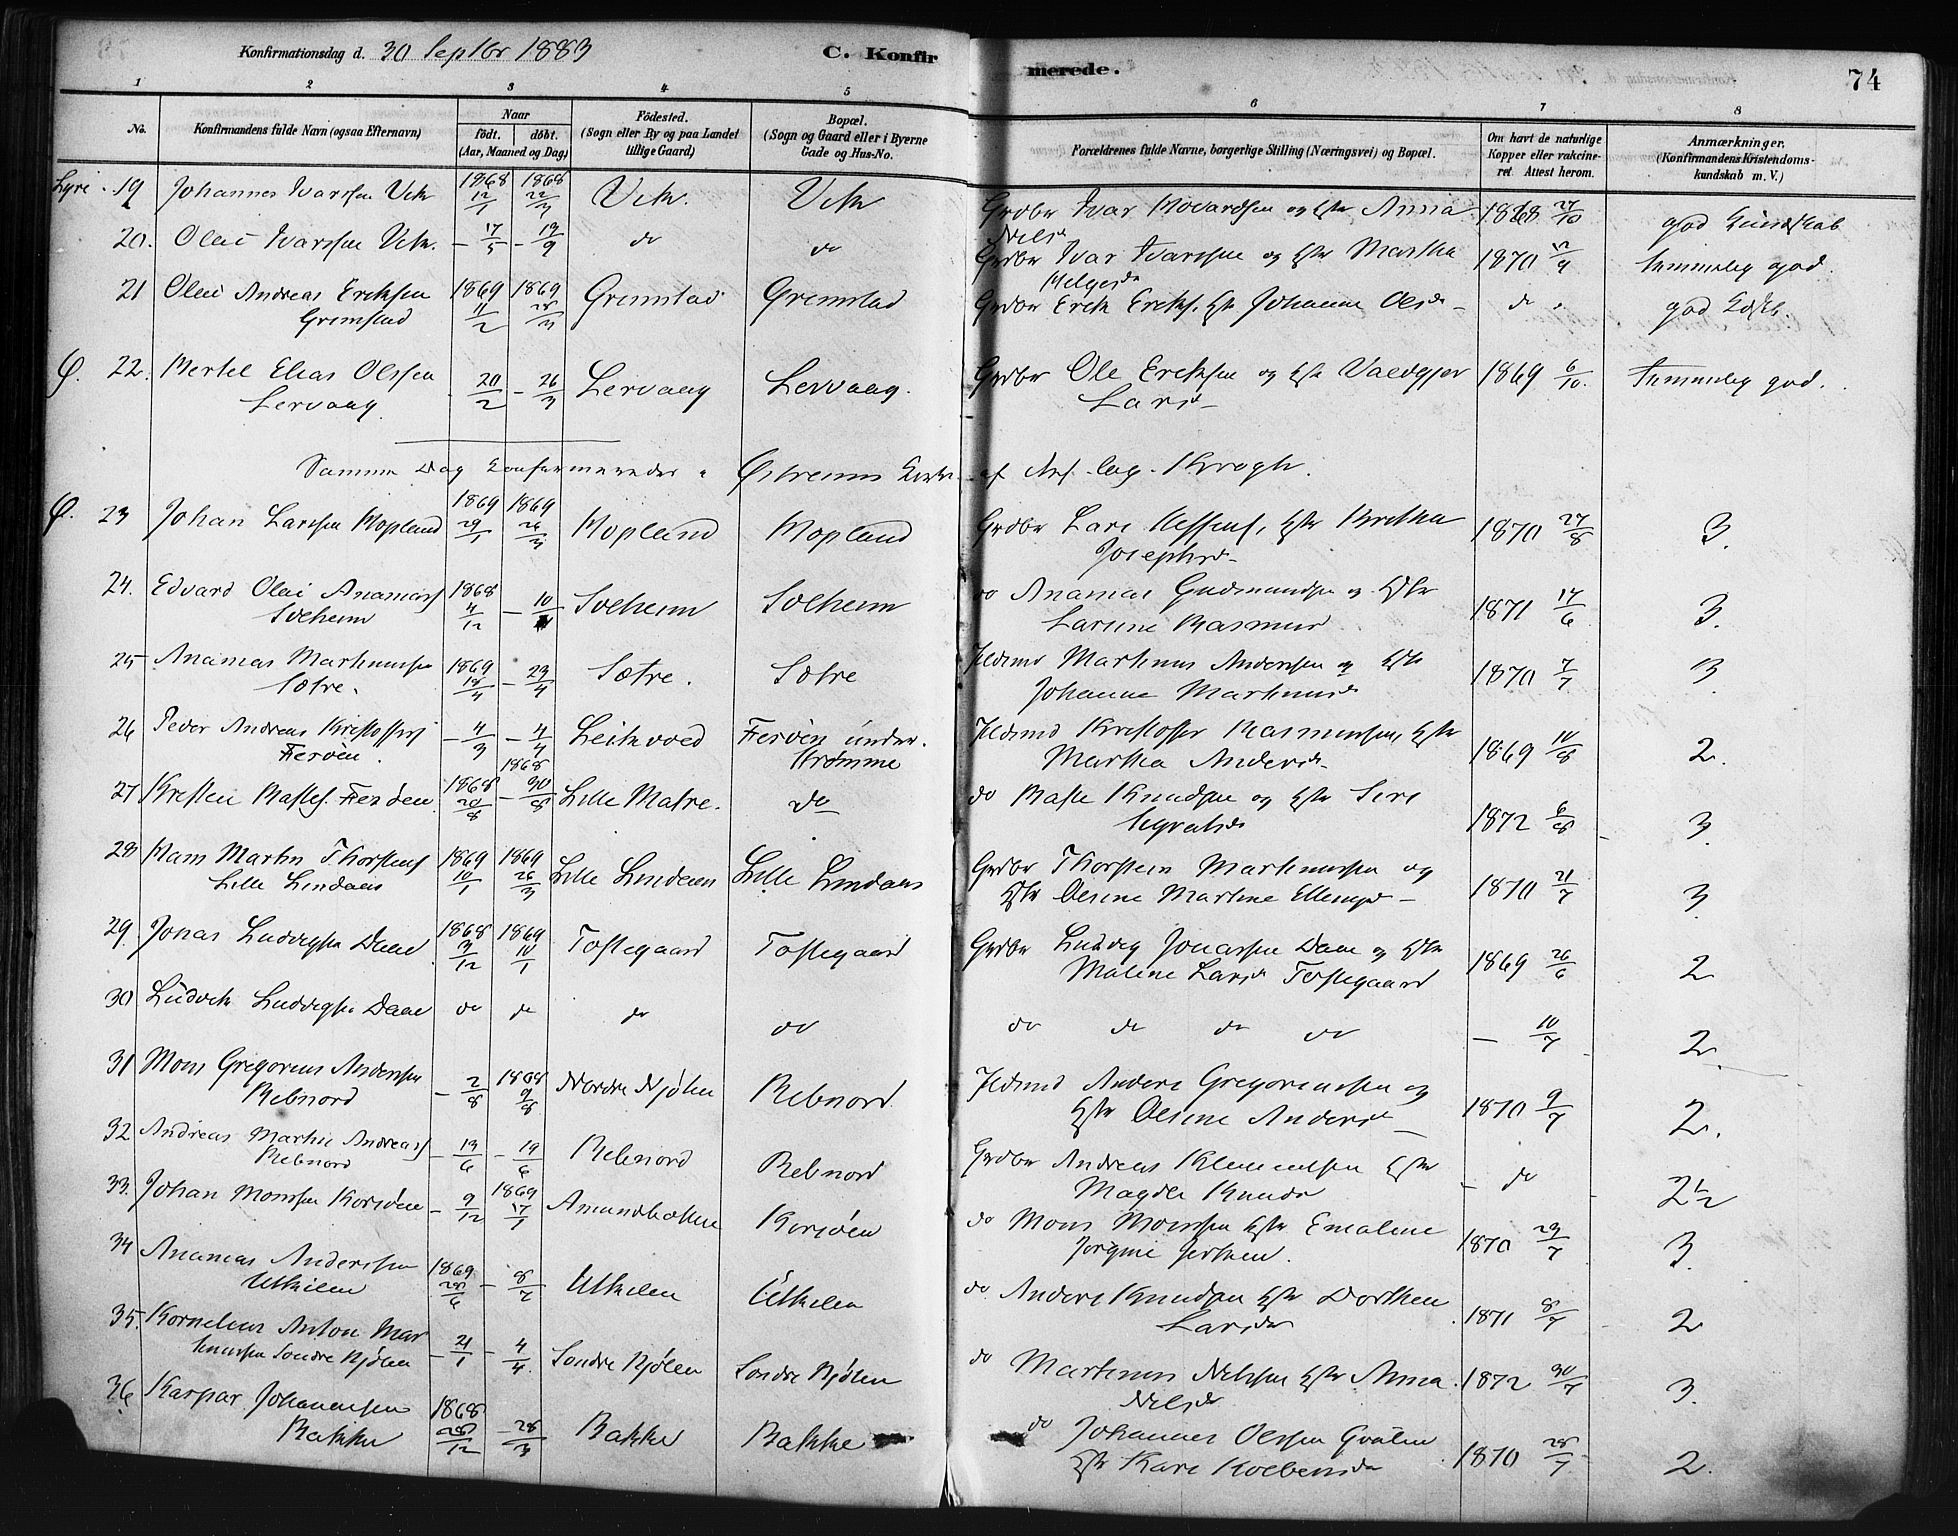 Konfirmationsdag d. 30 Septbr 1883
C. Konfirmerede.
74
1 2 3 4 5 6 7 8
No.
Konfirmandens fulde Navn (ogsaa Efternavn)
Naar
födt. döbt.
(Aar, Maaned og Dag)
Födested.
(Sogn eller By og paa Landet tillige Gaard)
Bopæl.
(Sogn og Gaard eller i Byerne Gade og Hus-No.
Forældrenes fulde Navne, borgerlige Stilling (Næringsvei) og Bopæl.
Om havt de naturlige Kopper eller vakcineret. Attest herom.
Anmærkninger.
(Konfirmandens Kristendomskundskab m. V.)
19 Johannes Ivarssen Vik 1868 12/1 1868 22/3 Vik. Vik Grdbr Ivar Hovardsen og Hstr Anna Nilsd 1868 27/10 god Kundskab
20. Olai Ivarssen Vik. – 17/5 – 13/9 do do Grdbr Ivar Ivarssen og Hstr Martha Helgesd 1870 12/9 temmelig god.
21 Olai Andreas Eriksen Grimstad 1869 11/2 1869 28/3 Grimstad Grimstad Grdbr Erik Eriks. Hstr Johanne Olsd – do god Kdsk.
Ø. 22. Bertel Elias Olssen Lervaag. 20/2 – 26/3 Lervaag Lervaag. Grdbr Ole Eriksen og Hstr Valdgjer Larsd – 1869 6/10. temmelig god.
Samme Dag Konfirmerede i Østreims Kirke af Krogh.
Ø. 23 Johan Larssen Hopland 1869 29/1 1869 26/3 Hopland Hopland Grdbr Lars Hstr Brithe Josephsd – 1870 27/8 3.
24. Edvard Olai Ananias Solheim 1868 4/12 – 10/1 Solheim Solheim do Ananias Gudmundsen og Hstr Larsine Rasmusd 1871 17/6 3.
25 Ananias Martinussen Sætre. 1869 18/4 – 23/4 Sætre. Sætre Martinus Anderssen og Hstr Johanne Martinusd 1870 7/7 3
26 Peder Andreas Kristoffers Feröen. – 4/3 – 4/4 Leitvoed Feröen under Strömme Kristoffer Rasmussen, Hstr Martha Andersd – 1869 10/8 2.
27 Kristen Basts. Feröen 1868 20/8 1868 – 30/8 Lille Matre. do do Baste Knudsen og Hstr Siri 1872 6/8 3.
28 Hans Martin Thorstens Lille Lindaas 1869 10/1 1869 26/3 Lille Lindaas Lille Lindaas Grdbr Thorstein Martinussen og Hstr Olsine Martine Ellingsd – 1870 21/7 3
29. Jonas Ludvigsen Daae 1868 3/12 1869 10/1 Toftegaard Toftegaard Grdbr Ludvig Jonassen Daae og Hstr Maline Larsd Toftegaard 1869 26/6 2
30 Ludvik Ludvigsen Daae do do do do do do do do – 10/7 2.
31 Mons Gregorius Anderssen Rebnord – 2/8 1868 9/8 Nordre Njölen Rebnord Anders Gregoriussen og Hstr Olsine Andersd – 1870 9/7 2.
32 Andreas Martin Andreass Rebnord – 13/6 – 19/6 Rebnord Rebnord Grdbr Andreas Klemetsen Hstr Magdli Knudsd – do 2½
33. Johan Monssen Korsöen – 9/12 1869 17/1 Korsöen do Mons Monssen Hstr Emaline 1870 23/7 3.
34 Ananias Anderssen Utkilen 1869 28/6 – 8/7 Utkilen Utkilen do Anders Knudsen Hstr Dorthea Larsd 1871 8/7 2
35. Kornelius Anton Martinussen Söndre Njölen – 21/1 – 4/4. Söndre Njölen Söndre Njölen do Martinus Nilssen Hstr Anna Nilsd 1872 30/7 3.
36. Kaspar Johannessen Bakke 1868 28/12 – 28/3 Bakke Bakke do Johannes Olssen Hstr Kari Kolbensd 1870 28/7 2.